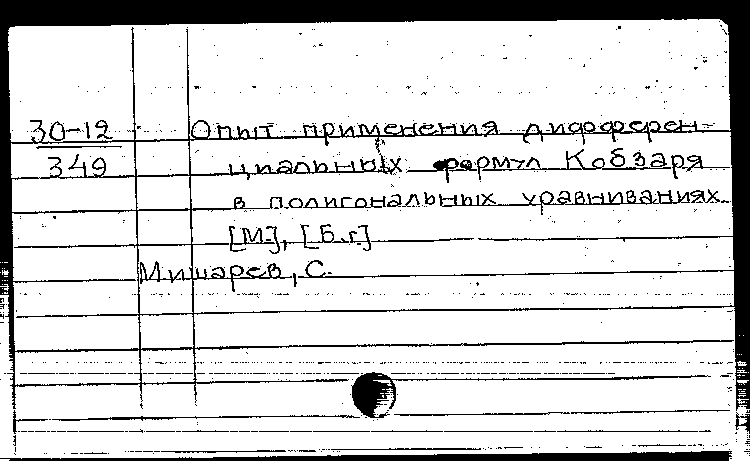 30-12 Опыт применения дифферен-
349 циальных формул Кобзаря
в полигональных уравниваниях
[М], [Б.г]
Мишарев, С.